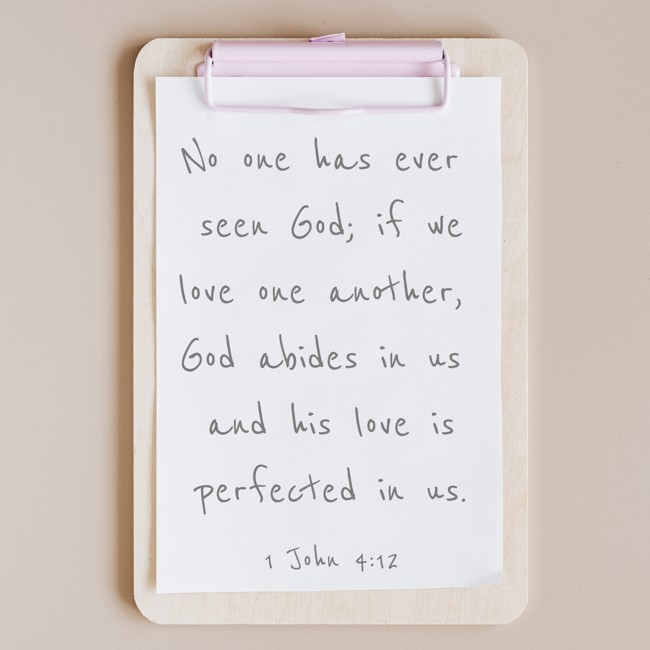 No one has ever
seen God; if we
love one another,
God abides in us
and his love is
perfected in us.
1 John 4:12